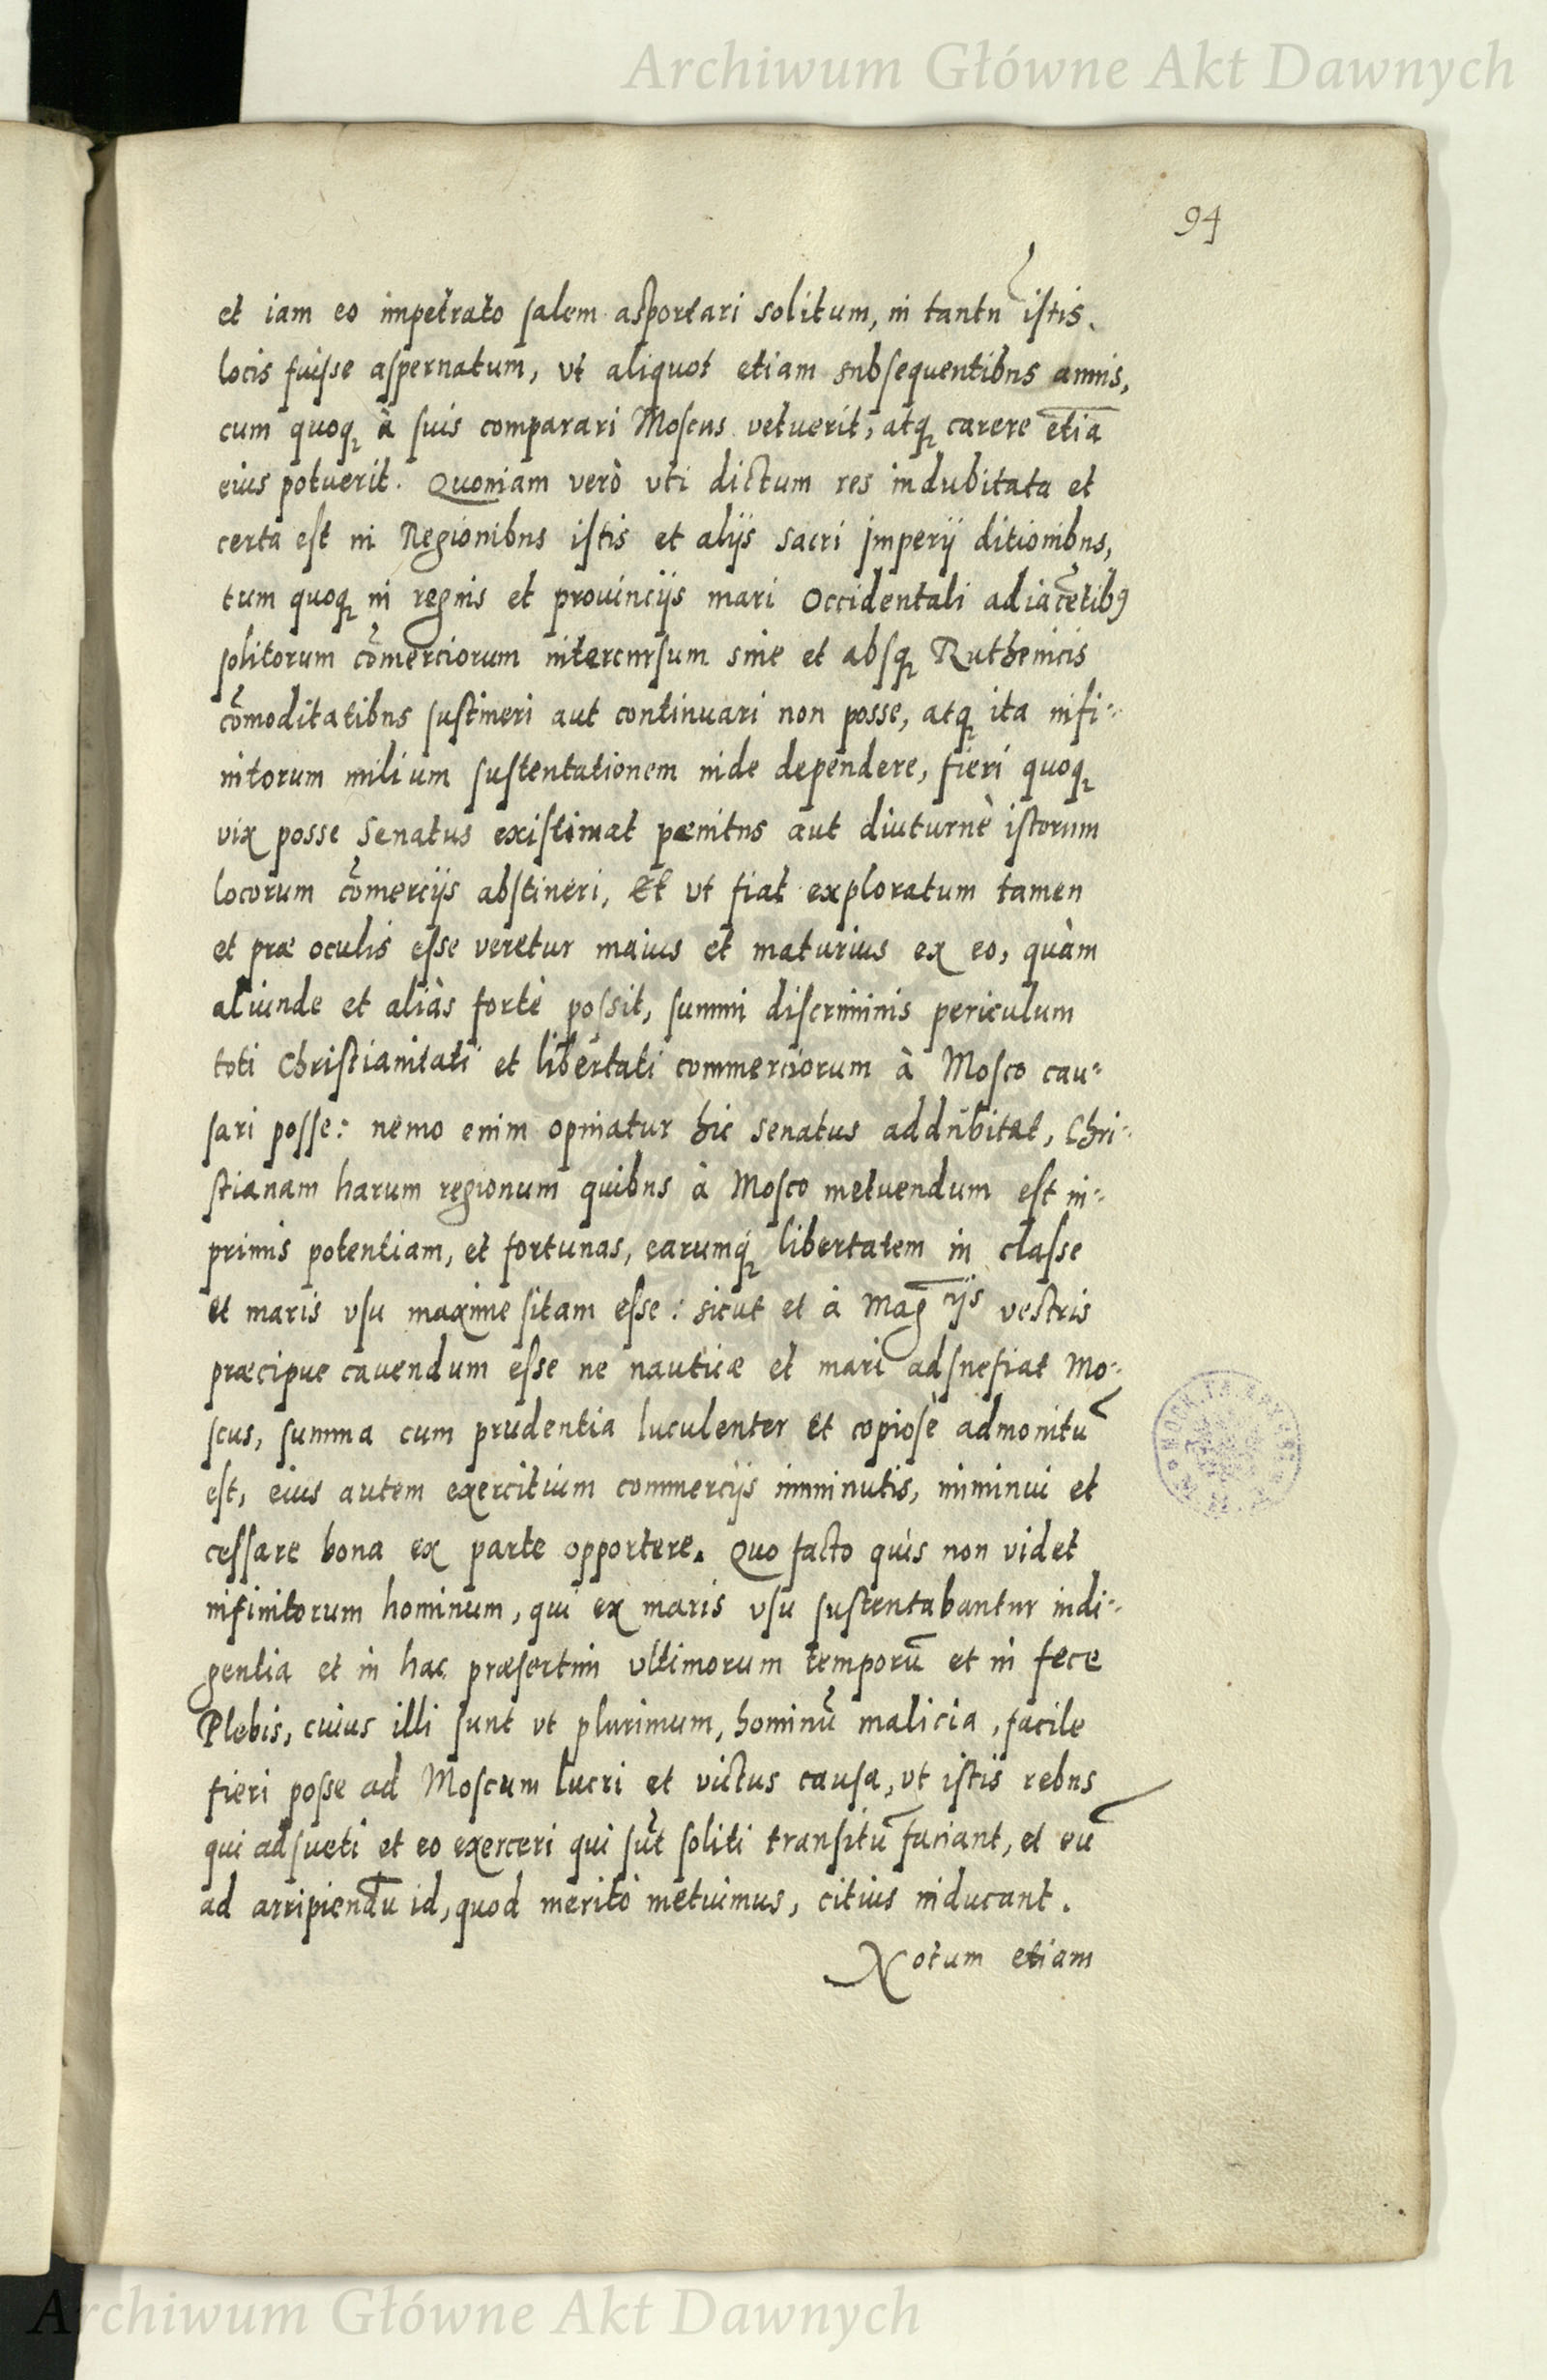 Archiwum Główne Akt Dawnych
94
et iam eo impetrato salem asportari solitum, in tantũ istis
locis fuisse aspernatum, vt aliquot etiam subsequentibus annis,
cum quoq à suis comparari Moscus vetuerit, atq carere etiã
eius potuerit. Quoniam verò vti dictum res indubitata et
certa est in Regionibus istis et alijs sacri Imperij ditionibus,
tum quoq in regnis et prouincijs mari Occidentali adiacẽtibꝯ
solitorum cõmerciorum intercursum sine et absq Ruthenicis
cõmoditatibus sustineri aut continuari non posse, atq ita infi-
nitorum milium sustentationem inde dependere, fieri quoq
vix posse Senatus existimat pænitus aut diuturnè istorum
locorum cõmercijs abstineri, Et vt fiat exploratum tamen
et præ oculis esse veretur maius et maturius ex eo, quàm
aliunde et aliàs fortè possit, summi discriminis periculum
toti Christianitati et libertati commerciorum à Mosco cau-
sari posse: nemo enim opinatur hic Senatus addubitat, Chri-
stianam harum regionum quibus à Mosco metuendum est in-
primis potentiam, et fortunas, earumq libertatem in classe
et maris vsu maxime sitam esse: sicut et à Mag̅cijs vestris
præcipue cauendum esse ne nauticæ et mari adsuefiat Mo-
scus, summa cum prudentia luculenter et copiosè admonitũ
est, eius autem exercitium commercijs imminutis, imminui et
cessare bona ex parte opportere. Quo facto quis non videt
infinitorum hominum, qui ex maris vsu sustentabantur indi-
gentia et in hac præsertim vltimorum temporũ et in fece
Plebis, cuius illi sunt vt plurimum, hominũ malicia, facile
fieri posse ad Moscum lucri et victus causa, vt istis rebus
qui adsueti et eo exerceri qui sũt soliti transitũ faciant, et eũ
ad arripiendũ id, quod meritò metuimus, citius inducant.
Notum etiam
Archiwum Główne Akt Dawnych